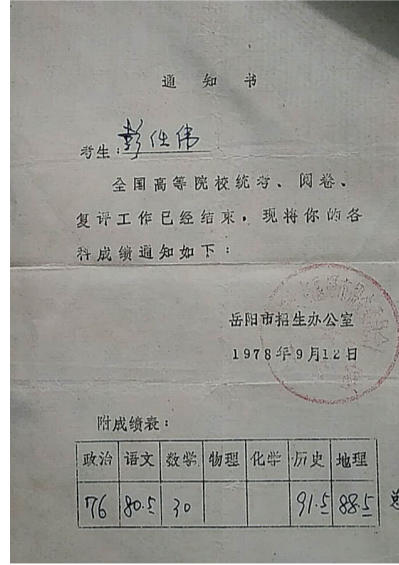 通知书
考生:彭仕伟
全国高等院校统考、阅卷、
复评工作已经结束,现将你的各
科成绩通知如下:
岳阳市招生办公室
1978年9月12日
附成绩表:
政治 语文 数学 物理 化学 历史 地理
76 80.5 30 91.5 88.5